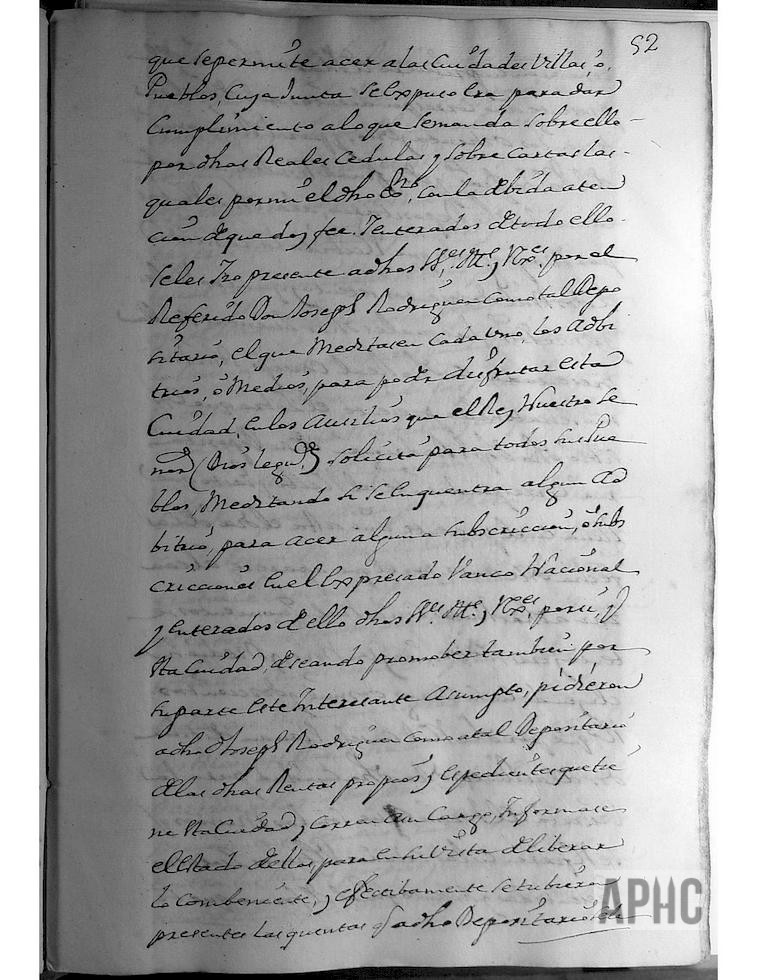 52
que se permíte acer a las Cuídades Villas, ó
Pueblos, Cuya Junta se Expuso Era para dar
Cumplimiento a lo que se manda sobre ello
por dhas Reales Cedulas y sobre Cartas las
quales por mí el dho Essno, con la debída aten
cion de que doy fee. Y enterados de todo ello
se les Izo presente a dhos SSres por el
Referído Don Joseph Rodriguez Como tal Depo
sitarío, el que Meditasen Cada Uno, los Adbi
tríos, ó Medíos, para poder disfrutar Esta
Cuídad, En los Auxilíos que el Rey Nuestro Se
nor (Dios le gue) solícita para todos sus Pue
blos, Meditando si se Enquentra algun Ad
bitrío, para acer alguna subscriccíon, ó subs
criccíones En el Expresado Vanco Nacíonal
y Enterados de ello dhos SSres por sí, y
Sta Cuídad, deseando promober tambíen por
su parte Este Interesante Asumpto, pidíeron
a dho Dn Joseph Rodriguez Como a tal Deposítarío
de las dhas Rentas propíos y Espedíentes que tíe
ne Sta Cuídad, y Corren a su Cargo, Informase
el Estado de ellos, para En su Vista deliberar
lo Combeníente, y efectibamente se tubíeron
presentes las quentas qe a dho Deposítarío
APHC